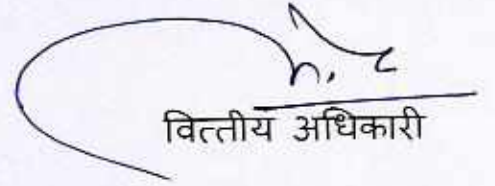 वित्तीय अधिकारी